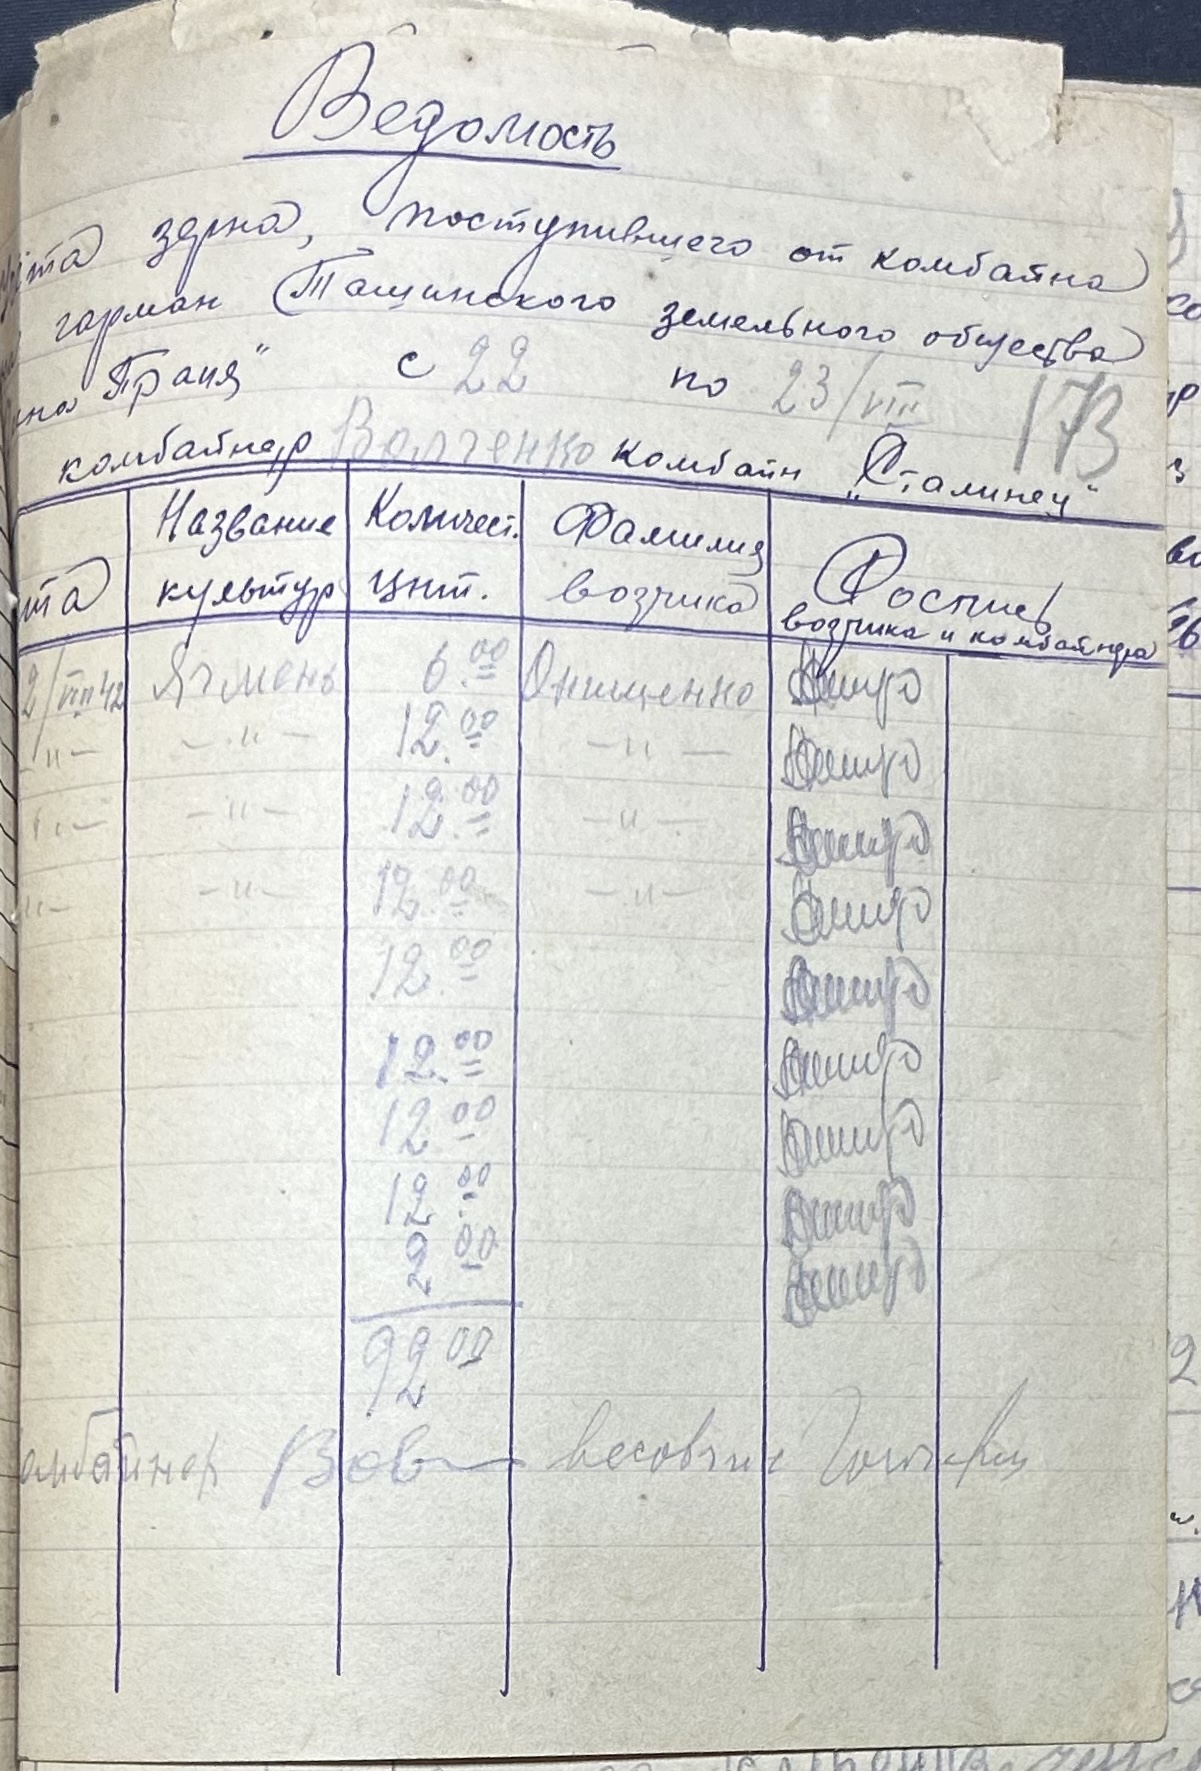 Ведомость
зерна, поступившего от комбайна
гарман Тащинского земельного общества
Траня" с 22 по 23/VIII 173
комбайнер Волченко комбайн „Сталинец"
та Название культур Количест. цнт. Фамилия возчика Роспись возчика и комбайнера
2/VIII 42 Ячмень 6.00 Онищенко
–"– –"– 12.00 –"–
–"– –"– 12.00 –"–
–"– –"– 12.00 –"–
12.00
12.00
12.00
12.00
2 00
92 00
омбайнер весовчик